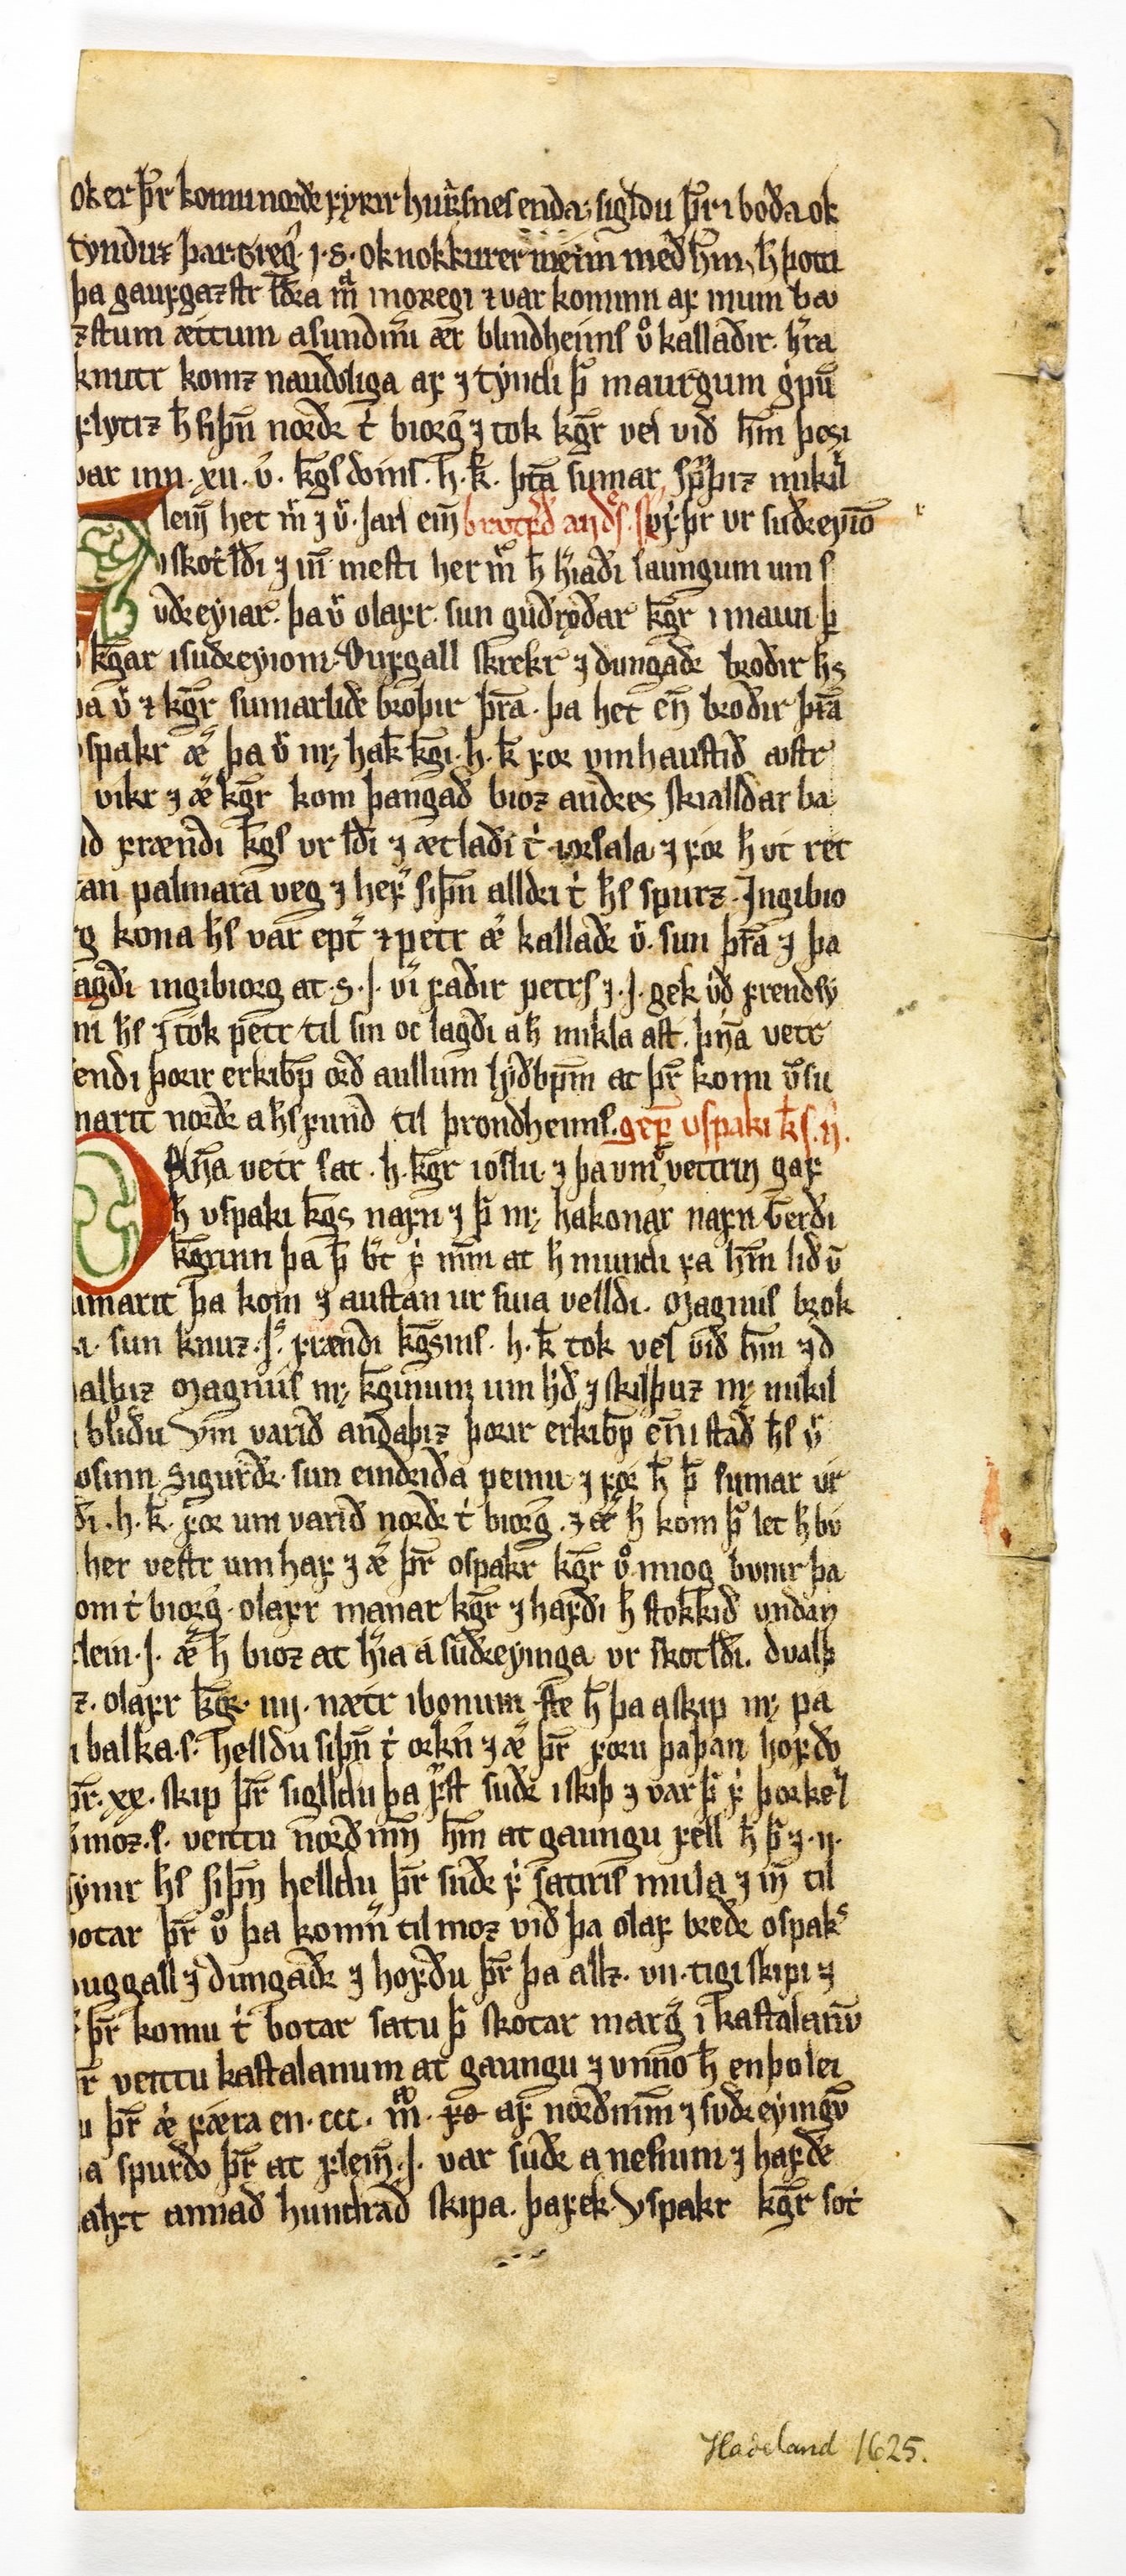 ok er þr̄ komu nordr fyrir hu᷎rsnes enda; sigldu þr̄ i boda ok
tynduz þar. Greg̾. j. s. ok nokkurer menn med hm̄. h̄ þotti
þa gaufgaztr ldra m̄ i noregi ⁊ var kominn af mum bæ
ztum ættum a sundm̄i ær blindheims u᷎ kalladir. hr̄a
knutr komz naudvliga af ⁊ tyndi þ̄ maurgum gͥpū
flytiz h̄ siþn̄ nordr t̾ biorg̾ ⁊ tok kḡr vel vid hm̄ þesi
var inn. xii. v̾. kḡs doms. h. k̄. þtā sumar spurþiz mikil
lein̄ het m̄ ⁊ v̾. jarl ein̄ brotf̾d and̾s. s. þr̄ ur sudreyiō
skotldi ⁊ in̄ mesti her m̄ h̄ h̾iadi laungum um s
udreyiar. þa v̾ olafr. sun gudrødar kḡr i maun þ̾
kḡar i sudreyiom. Dufgall skrekr ⁊ dungadr brodir hs
þa v̾ ⁊ kḡr sumarlidr broþir þrā. þa het en̄ brodir þrā
uspakr æ̾ þa v̾ m; hak̄ kḡi. h. k̄ for um haustid austr
vikr ⁊ æ̾ kḡr kom þangad bioz andres skialldar ba
nd frændi kḡs ur ldi ⁊ ætladi t̾ iorsala ⁊ for h̄ ut ret
tan palmara veg ⁊ hef̾ siþn̄ alldri t̾ hs spurz. Ingibio
rg kona hs var ept̾ ⁊ petr æ̾ kalladr v̾. sun þrā ⁊ þa
sagdi ingibiorg at. S. J. v̾i fadir petrs ⁊. J. gek v̾d frendsy
mi hs ⁊ tok petr til sin oc lagdi a h̄ mikla ast. þn̄a vetr
sendi þorir erkibp̄ ord aullum lydbpm̄ at þr̄ komi v̄ su
marit nordr a hs fund til þrondheims. gef̾ uspaki k̄s. n̄.
Þn̄a vetr sat. h. kḡr i oslu. ⁊ þa um vettrin gaf
h̄ uspaki kḡs nafn ⁊ þ̄ m; hakonar nafn Gerdi
kḡrinn þa þ̄ b̾t f̾ m̄m at h̄ mundi fa hm̄ lid v̄
sumarit þa kom ⁊ austan ur suia velldi. Magnus brok
a. sun knuz. J. frændi kḡsins. h. k̄ tok vel vid hm̄ ⁊ d
ualþiz Magnus m; kḡinum um h̾d ⁊ skilþuz m; mikil
i blidu Um varid andaþiz þorir erkibp̄ en̄ i stad hs v̾
kosinn Sigurdr. sun eindrida peinu ⁊ for h̄ þ̄ sumar ur
ldi. h. k̄. for um varid nordr t̾ biorg̾. ⁊ æ̾ h̄ kom þ̾ let h̄ bu
her vestr um haf ⁊ æ̾ þr̄ ospakr kḡr v̾ miog bunir þa
kom t̾ biorg̾. olafr manar kḡr ⁊ hafdi h̄ stokkid undan
alein. J. æ̾ h̄ bioz at h̾ia a sudreyinga ur skotldi. dvalþ
iz. olafr kḡr. iiij. nætr i bonum ste h̄ þa a skip m; pa
l balka. s. helldu siþn̄ t̾ orkn̾ ⁊ æ̾ þr̄ foru þaþan hofdo
þr̄. xx. skip þr̄ siglldu þa f̾st sudr i skiþ ⁊ var þ̾ f̾ þorkel
þ̾moz. s. veittu nordm̄n hm̄ at gaungu fell h̄ þ̾ ⁊. ii.
synir hs siþn̄ helldu þr̄ sudr f̾ satiris mula ⁊ in̄ til
botar þr̄ v̾ þa komn̾ til moz vid þa olaf brædr ospaks
duggall ⁊ dungadr ⁊ hofdu þr̄ þa allz. vii. tigi skipi ⁊
þr̄ komu t̾ botar satu þ̾ skotar marg̾ i kastalanū
þr̄ veittu kastalanum at gaungu ⁊ unno h̄ en þo lei
u þr̄ æ̾ færa en. ccc. m̄. af nordm̄m ⁊ sudreyingū
þa spurdo þr̄ at alein̄. J. var sudr a nesium ⁊ hafde
saft annad hundrad skipa. þa fek Uspakr kḡr sot
Hadeland 1625.